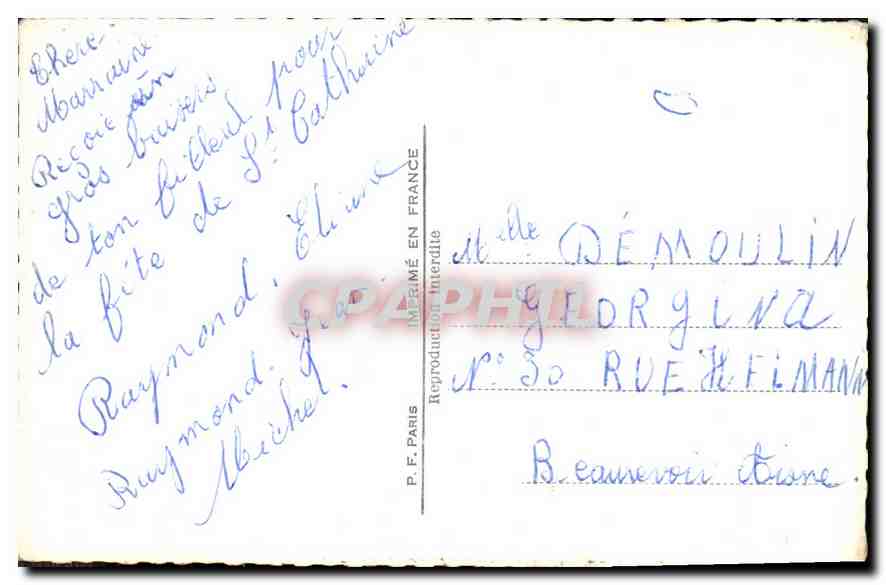 Chère
Marraine
Reçoie un
gros baisers
de ton filleul pour
la fête de St Catherine
Raymond, Eliane
Raymond.
Michel.
P. F. PARIS IMPRIMÉ EN FRANCE
Reproduction interdite
CARPHTL
Melle DÉMOULIN
GEORGINA
N° 30 RUE HELMANN
Beaurevoir Aisne.